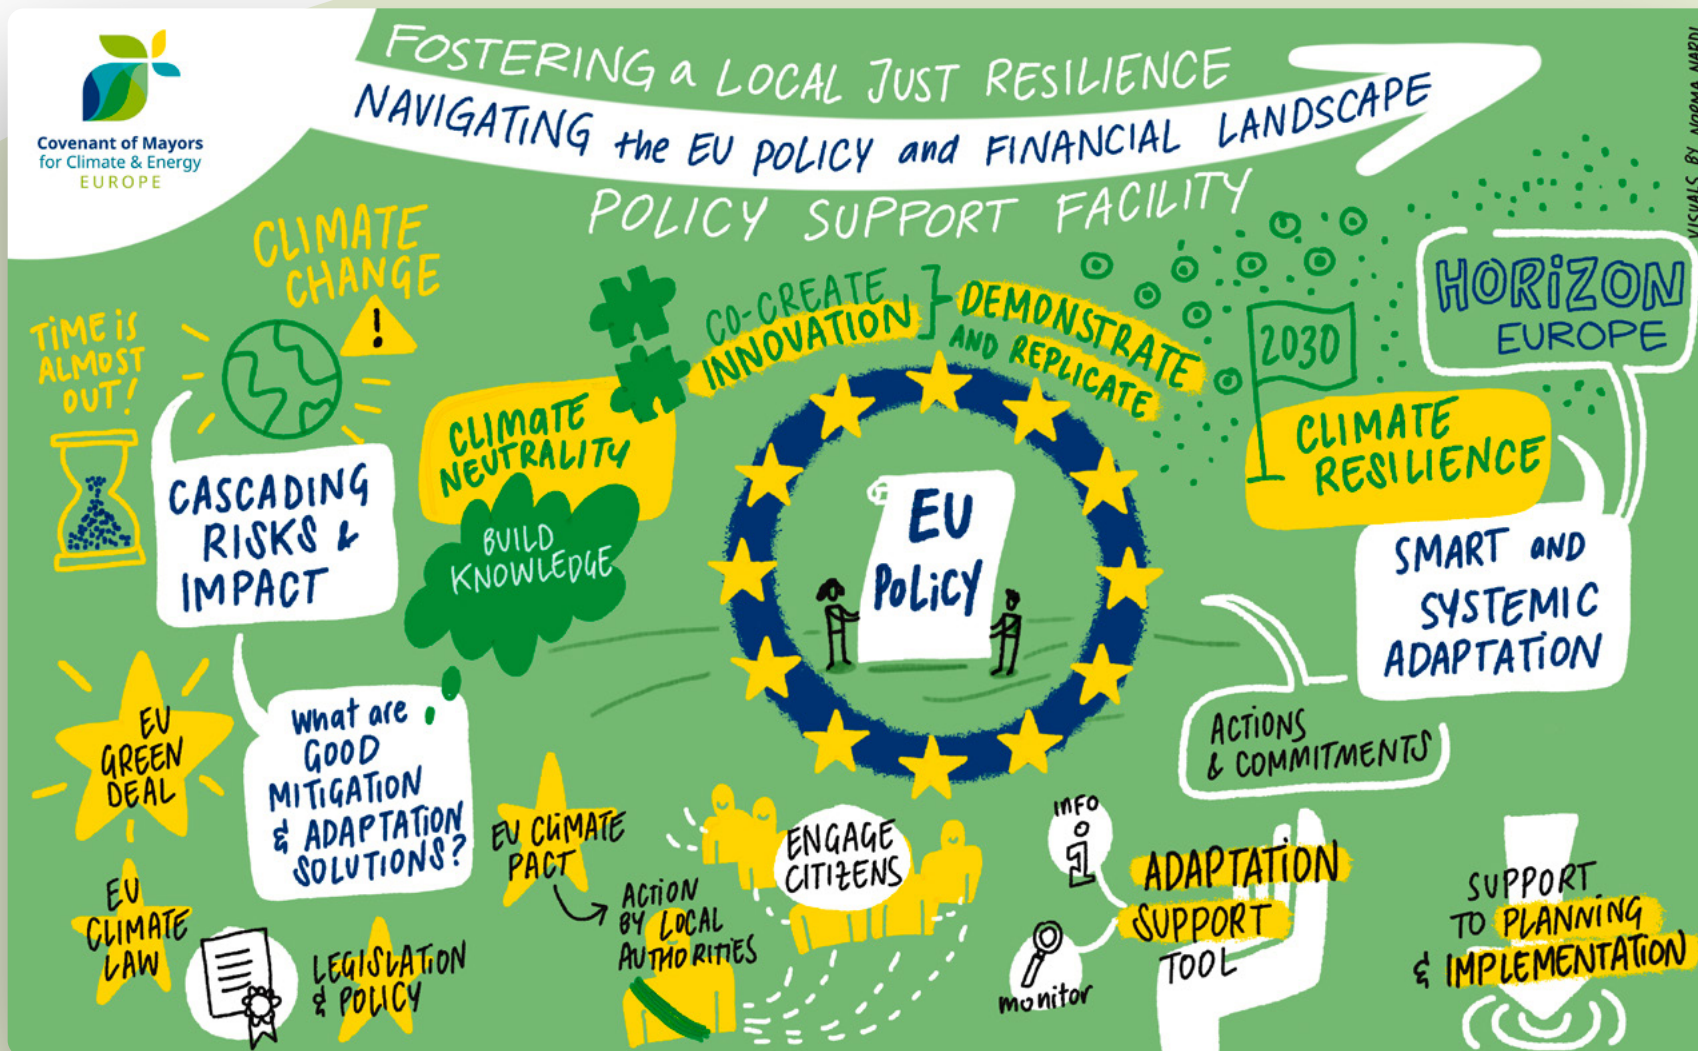 Covenant of Mayors
for Climate & Energy
EUROPE
FOSTERING a LOCAL JUST RESILIENCE
NAVIGATING the EU POLICY and FINANCIAL LANDSCAPE
POLICY SUPPORT FACILITY
VISUALS BY NORMA NARDI
CLIMATE
CHANGE
!
TIME is
ALMOST
OUT!
CASCADING
RISKS &
IMPACT
CLIMATE
NEUTRALITY
BUILD
KNOWLEDGE
CO-CREATE
INNOVATION
DEMONSTRATE
AND REPLICATE
2030
CLIMATE
RESILIENCE
HORIZON
EUROPE
SMART AND
SYSTEMIC
ADAPTATION
EU
POLICY
ACTIONS
& COMMITMENTS
EU
GREEN
DEAL
What are
GOOD
MITIGATION
& ADAPTATION
SOLUTIONS?
EU
CLIMATE
LAW
LEGISLATION
& POLICY
EU CLIMATE
PACT
ACTION
BY LOCAL
AUTHORITIES
ENGAGE
CITIZENS
INFO
i
monitor
ADAPTATION
SUPPORT
TOOL
SUPPORT
TO PLANNING
& IMPLEMENTATION